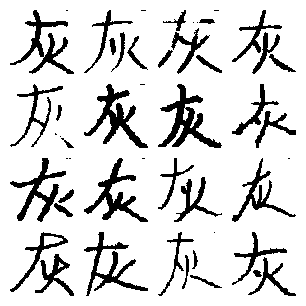 灰灰灰灰
灰灰灰灰
灰灰灰灰
灰灰灰灰